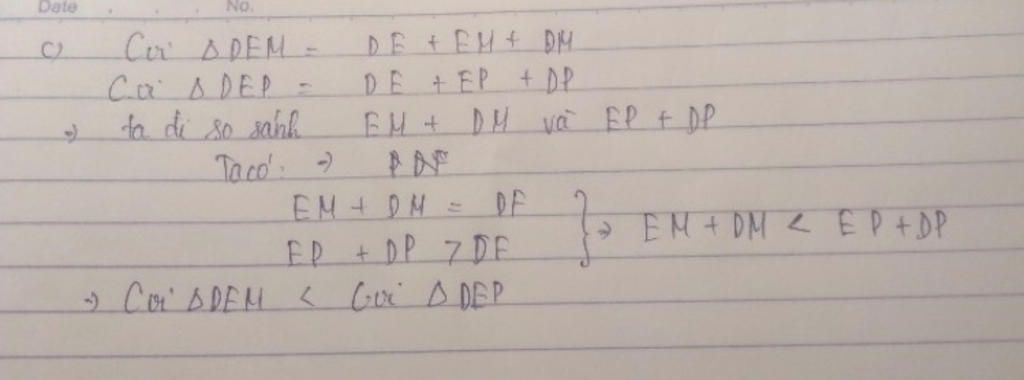 Date No.
c) Cvi ΔDEM = DE + EM + DM
Cvi ΔDEP = DE + EP + DP
=> ta đi so sánh EM + DM và EP + DP
Ta có: =>
EM + DM = DF
EP + DP > DF } => EM + DM < EP + DP
=> Cvi ΔDEM < Cvi ΔDEP